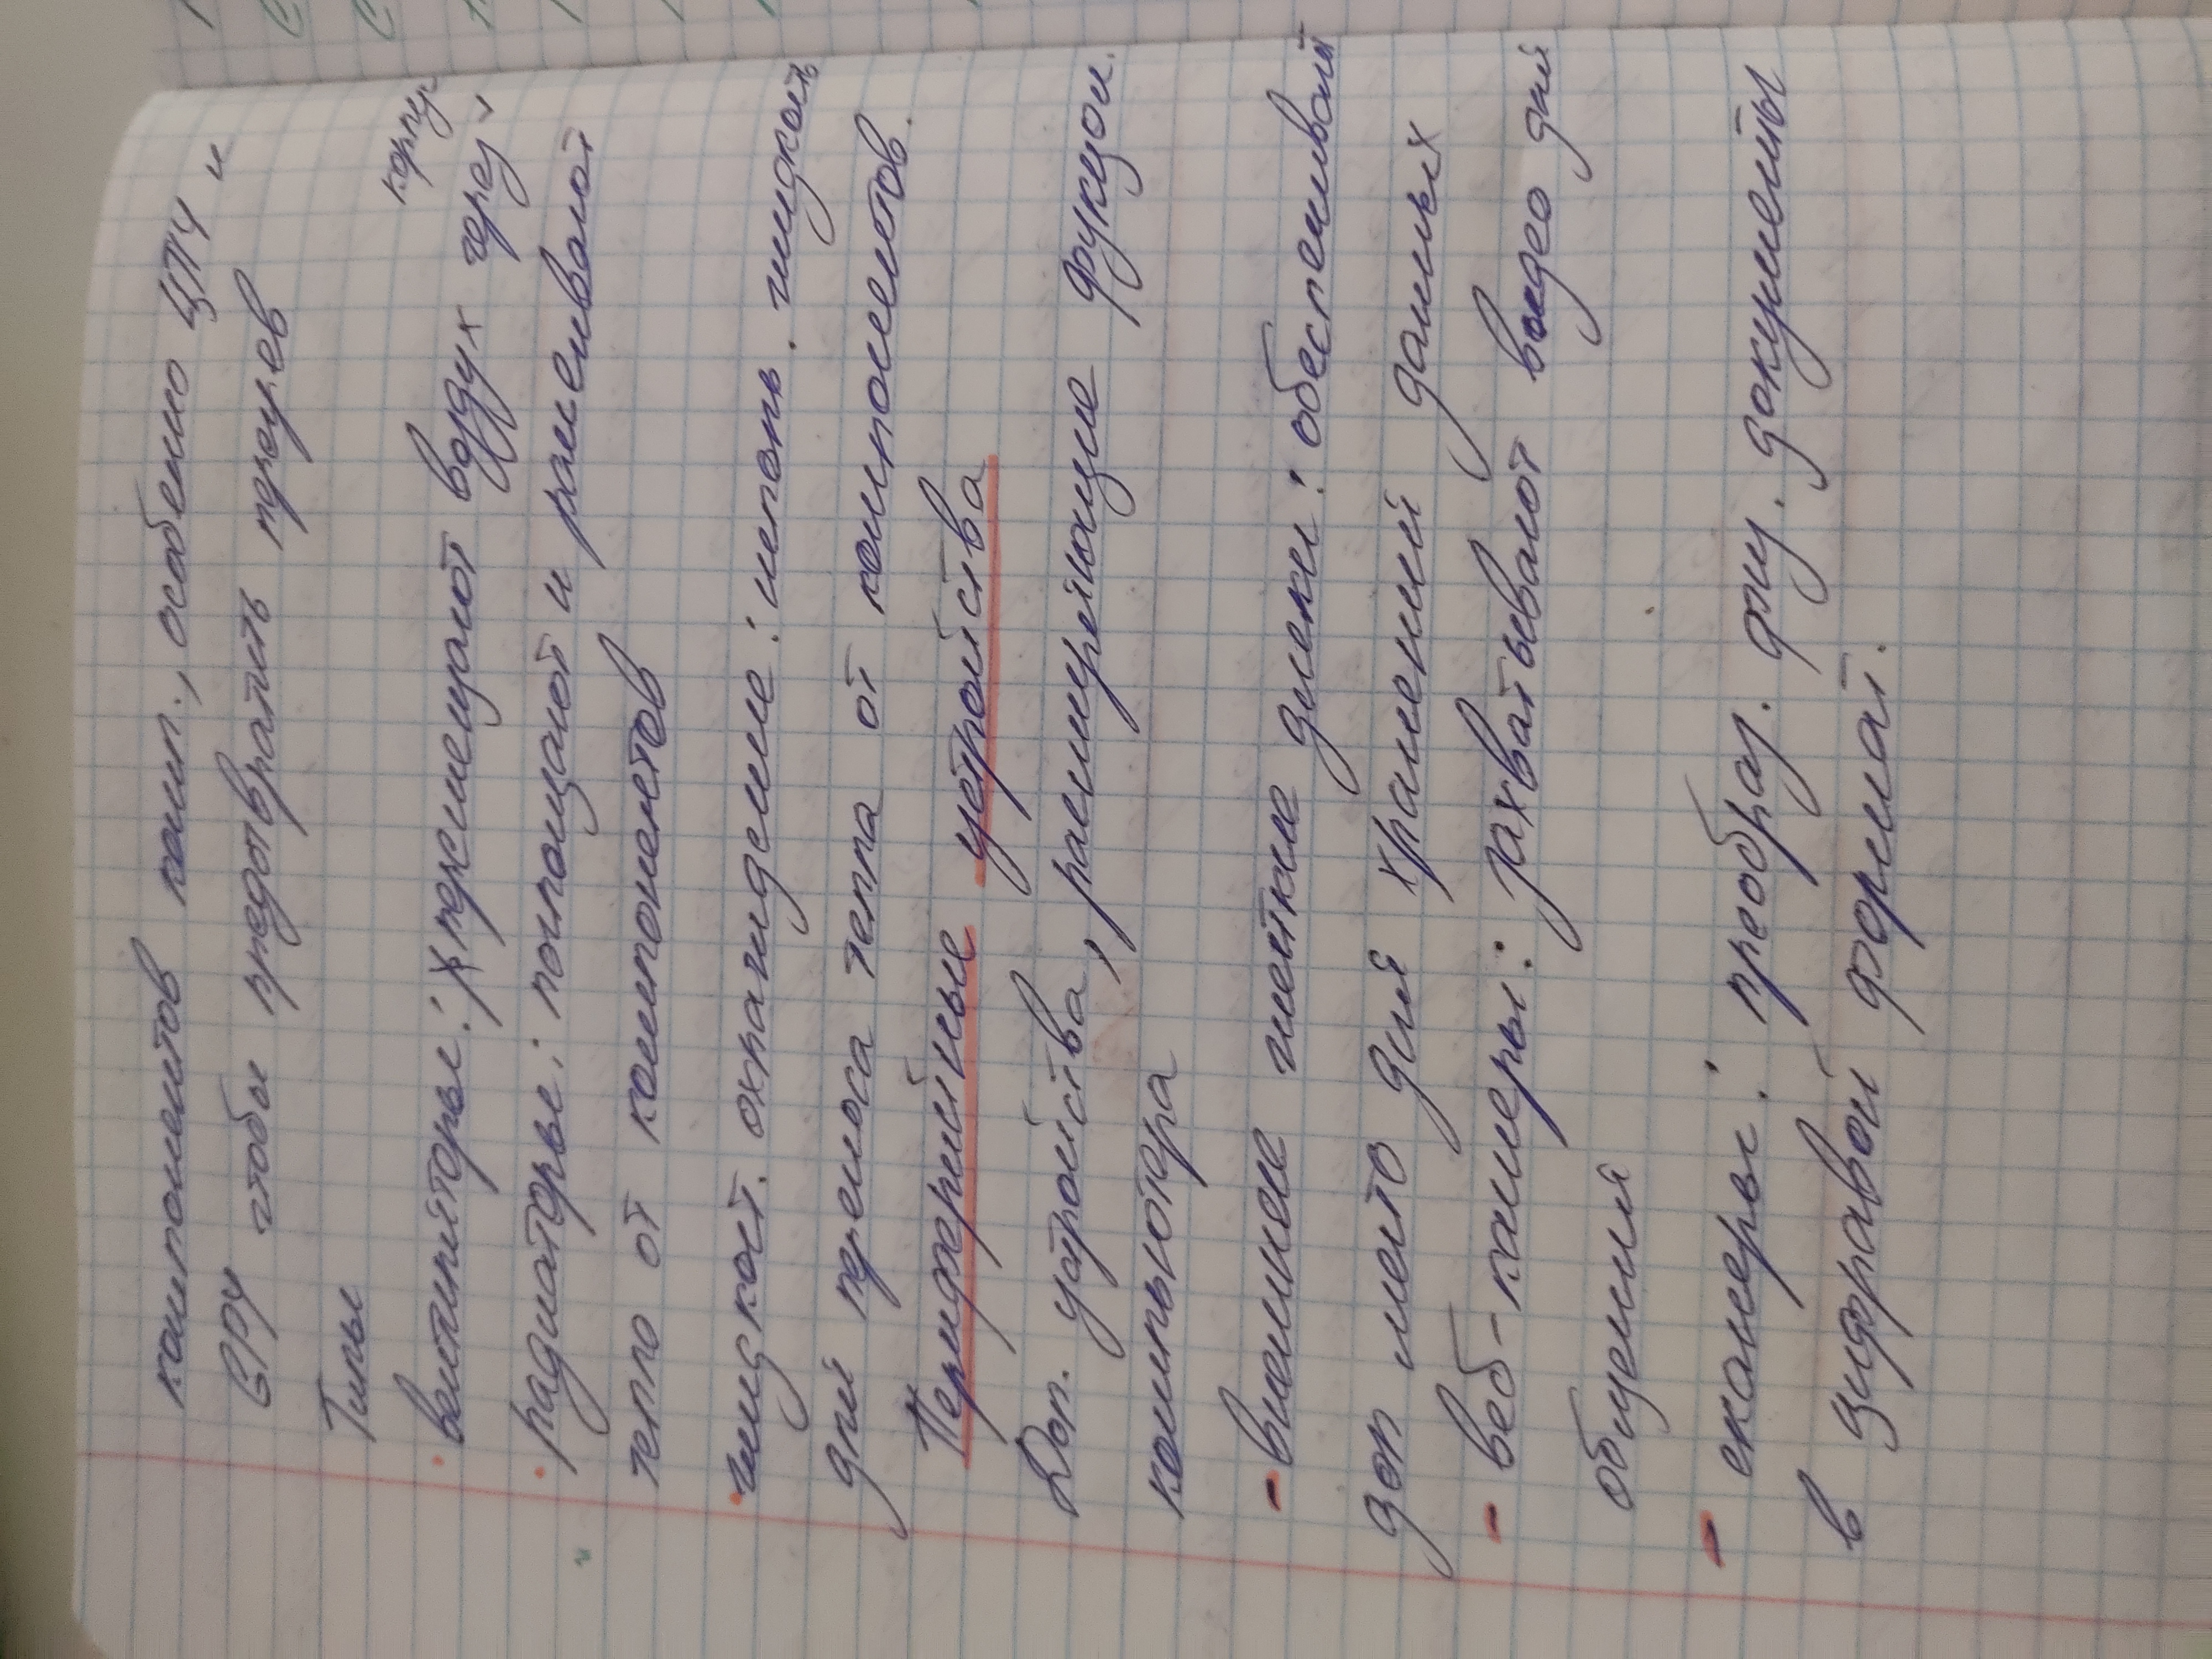 компонентов комп., особенно ЦПУ и
GPY чтобы предотвратить перегрев
Типы
корпус
· вентиляторы: перемещают воздух через
· радиаторы: поглощают и рассеивают
тепло от компонентов
· жидкост. охлаждение: исполь. жидкость
для переноса тепла от компонентов.
Периферийные устройства
Доп. устройства, расширяющие фукцои.
компьютера
- внешние жесткие диски: обеспечивают
доп место для хранения данных
- веб-камеры: захватывают видео для
общения
- сканеры: преобраз. физ. документы
в цифравой формат.